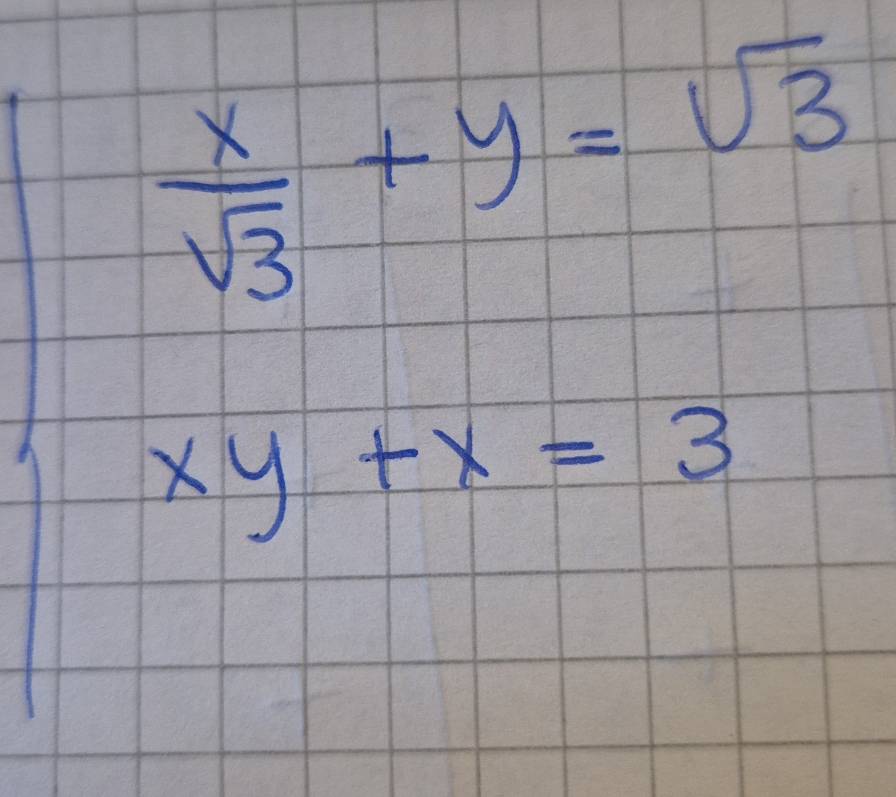 x/√3 + y = √3
xy + x = 3